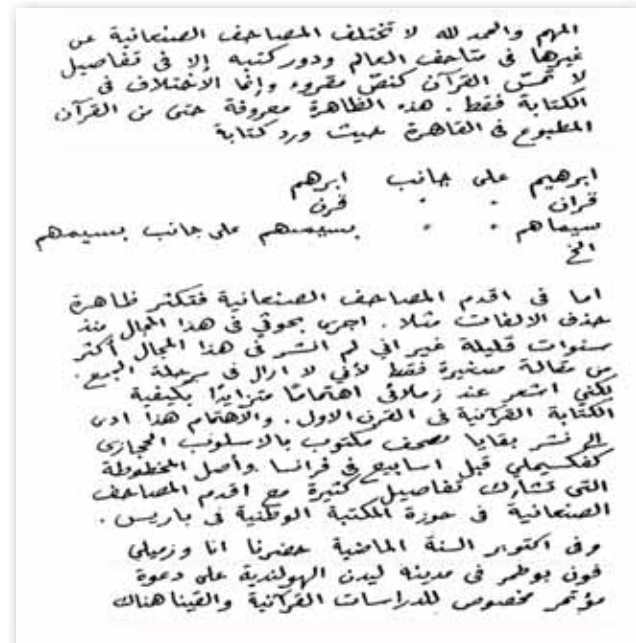 المهم والحمد لله لا تختلف المصاحف الصنعانية عن
غيرها في متاحف العالم ودور كتبه إلا في تفاصيل
لا تمس القرآن كنص مقروء وإنما الاختلاف في
الكتابة فقط . هذه الظاهرة معروفة حتى من القرآن
المطبوع في القاهرة حيث ورد كتابة
ابرهيم على جانب ابرهم
قران " " قرن
سيماهم " " بسيمهم على جانب بسيمهم
الخ
اما في اقدم المصاحف الصنعانية فتكثر ظاهرة
حذف الالفات مثلا . اجري بحوثي في هذا المجال منذ
سنوات قليلة غير اني لم انشر في هذا المجال أكثر
من مقالة صغيرة فقط لأني لا ازال في مرحلة الجمع .
لكني اشعر عند زملائي اهتمامًا متزايدًا بكيفية
الكتابة القرآنية في القرن الاول . والاهتمام هذا ادى
الى نشر بقايا مصحف مكتوب بالاسلوب الحجازي
كفكسيملي قبل اسابيع في فرنسا وأصل المخطوطة
التي تشارك تفاصيل كثيرة مع اقدم المصاحف
الصنعانية في حوزة المكتبة الوطنية في باريس .
وفي اكتوبر السنة الماضية حضرنا انا وزميلي
فون بوطمر في مدينة ليدن الهولندية على دعوة
مؤتمر مخصوص للدراسات القرآنية والقينا هناك